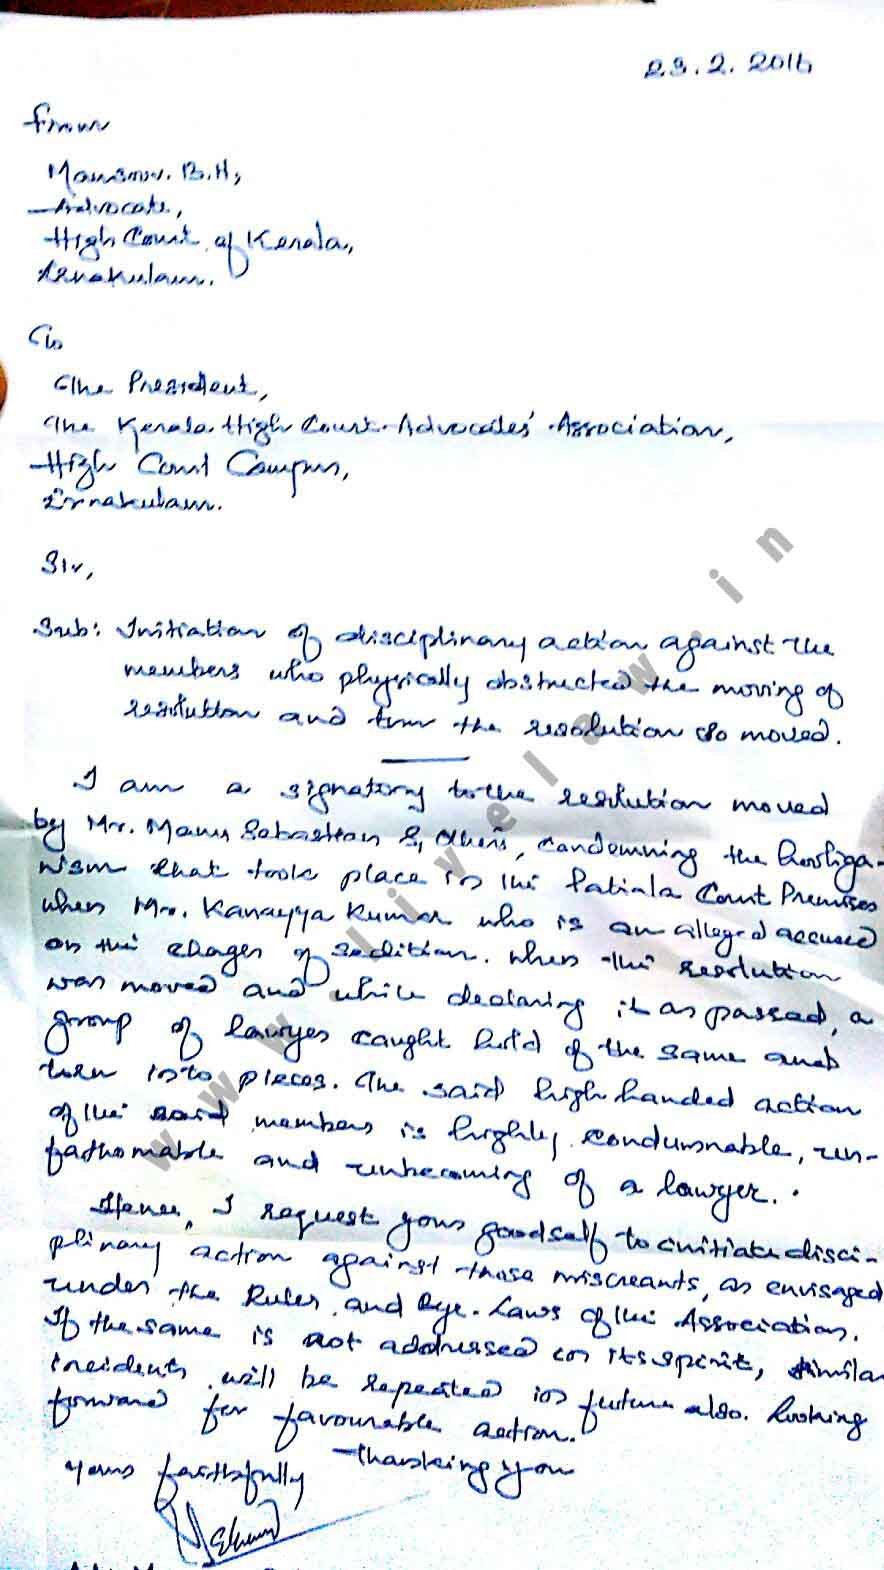 23.2.2016
From
Mansoor. B.H,
Advocate,
High Court of Kerala,
Ernakulam.
To
The President,
The Kerala High Court Advocates' Association,
High Court Campus,
Ernakulam.
Sir,
Sub: Initiation of disciplinary action against the
members who physically obstructed the moving of
resolution and torn the resolution so moved.
I am a signatory to the resolution moved
by Mr. Manu Sebastian & Others, condemning the hooliga-
nism that took place in the Patiala Court Premises
when Mr. Kanayya Kumar who is an alleged accused
on the charges of sedition. When the resolution
was moved and while declaring it as passed, a
group of lawyes caught hold of the same and
torn into pieces. The said high handed action
of the said members is highly condumnable, un-
fathomable and unbecoming of a lawyer.
Hence, I request your goodself to initiate disci-
plinary action against those miscreants, as envisaged
under the Rules and Bye-Laws of the Association.
If the same is not addressed in its spirit, similar
incidents will be repeated in future also. Looking
forward for favourable action.
Thanking you
Yours faithfully
www.livelaw.in